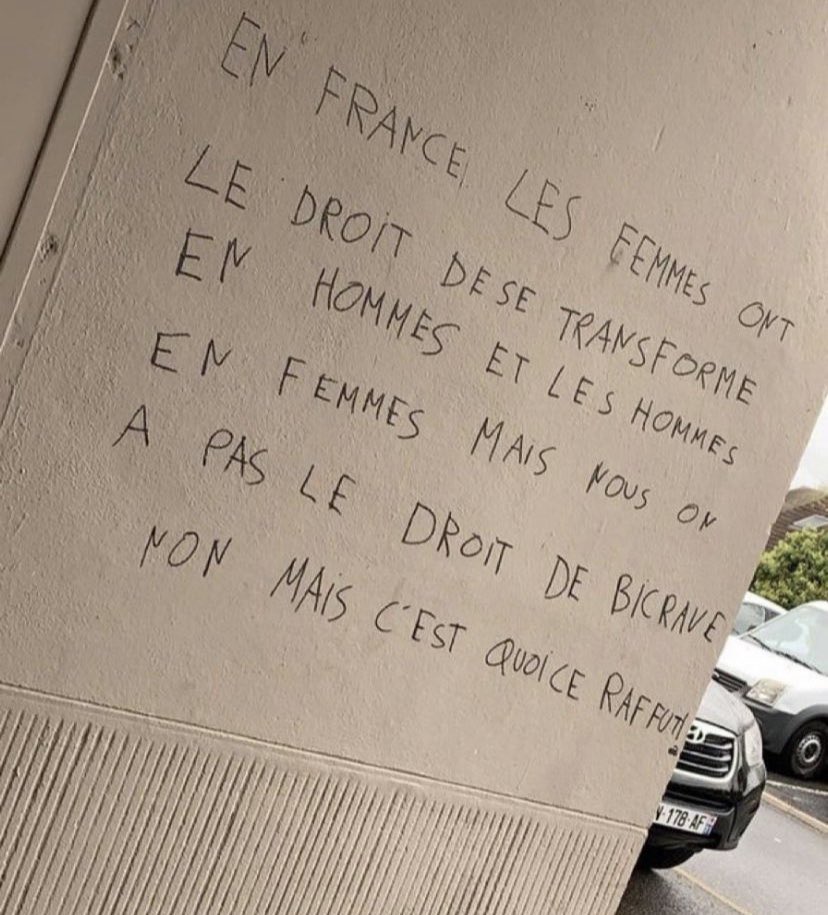 EN FRANCE, LES FEMMES ONT
LE DROIT DE SE TRANSFORME
EN HOMMES ET LES HOMMES
EN FEMMES MAIS NOUS ON
A PAS LE DROIT DE BICRAVE
NON MAIS C'EST QUOI CE RAFFUT!
178-AF